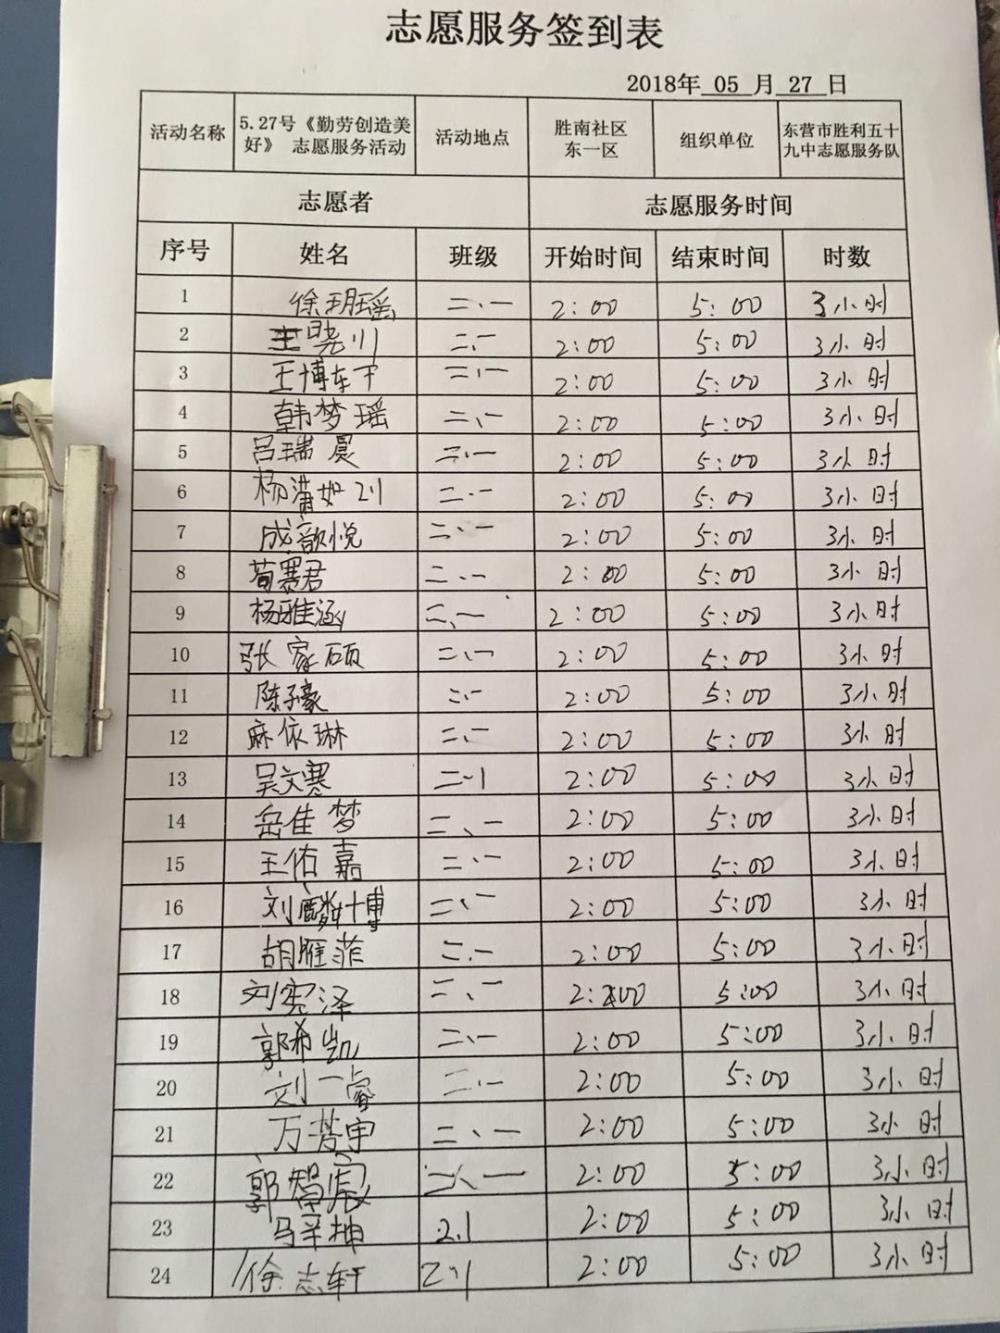 志愿服务签到表
2018年 05 月 27 日
活动名称 5.27号《勤劳创造美好》 志愿服务活动 活动地点 胜南社区东一区 组织单位 东营市胜利五十九中志愿服务队
志愿者 志愿服务时间
序号 姓名 班级 开始时间 结束时间 时数
1 徐玥瑶 二、一 2:00 5:00 3小时
2 二、一 2:00 5:00 3小时
3 二、一 2:00 5:00 3小时
4 韩梦瑶 二、一 2:00 5:00 3小时
5 吕瑞晨 二、一 2:00 5:00 3小时
6 二、一 2:00 5:00 3小时
7 成歆悦 二、一 2:00 5:00 3小时
8 二、一 2:00 5:00 3小时
9 杨雅涵 二、一 2:00 5:00 3小时
10 张家硕 二、一 2:00 5:00 3小时
11 陈子豪 二、一 2:00 5:00 3小时
12 麻依琳 二、一 2:00 5:00 3小时
13 吴文骞 二、1 2:00 5:00 3小时
14 岳佳梦 二、一 2:00 5:00 3小时
15 王佑嘉 二、一 2:00 5:00 3小时
16 刘麟博 二、一 2:00 5:00 3小时
17 胡雅菲 二、一 2:00 5:00 3小时
18 刘宪泽 二、一 2:00 5:00 3小时
19 郭希凯 二、一 2:00 5:00 3小时
20 刘一睿 二、一 2:00 5:00 3小时
21 二、一 2:00 5:00 3小时
22 郭智宸 二、一 2:00 5:00 3小时
23 2.1 2:00 5:00 3小时
24 徐志轩 2、1 2:00 5:00 3小时